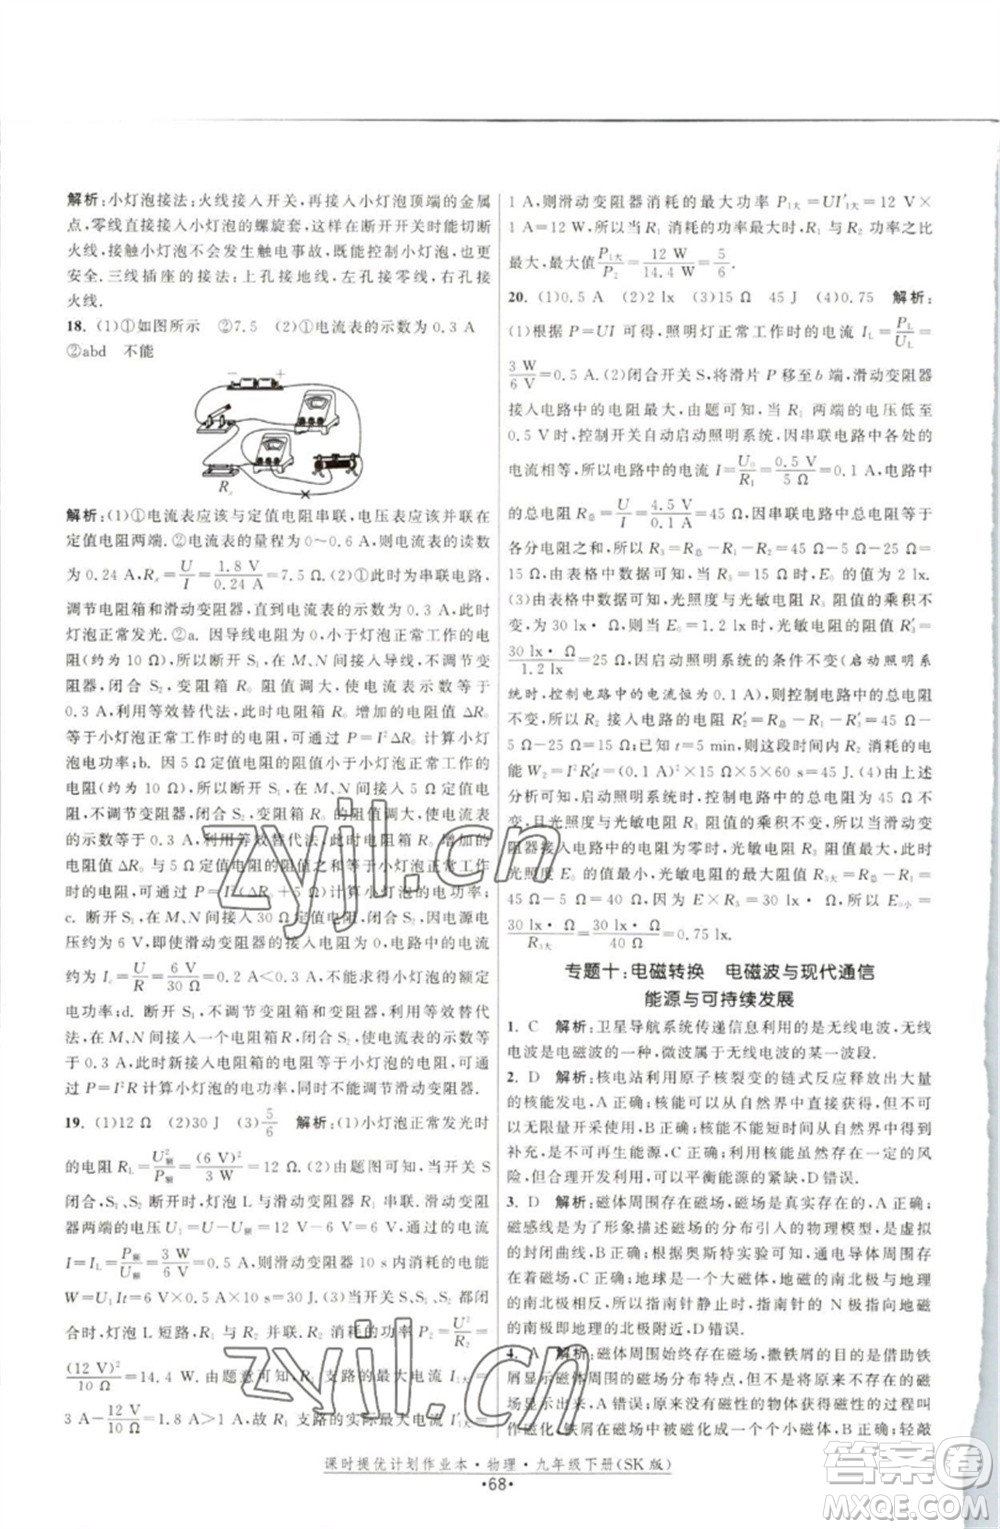 解析:小灯泡接法:火线接入开关,再接入小灯泡顶端的金属
点,零线直接接入小灯泡的螺旋套,这样在断开开关时能切断
火线,接触小灯泡不会发生触电事故,既能控制小灯泡,也更
安全.三线插座的接法:上孔接地线,左孔接零线,右孔接
火线.
18. (1)①如图所示 ②7.5 (2)①电流表的示数为 0.3 A
②abd 不能
− +
Rx
解析:(1)①电流表应该与定值电阻串联,电压表应该并联在
定值电阻两端.②电流表的量程为 0~0.6 A,电流表的读数
为 0.24 A,Rx=U/I=1.8 V/0.24 A=7.5 Ω.(2)①此时为串联电路,
调节电阻箱和滑动变阻器,直到电流表的示数为 0.3 A,此时
灯泡正常发光.②a. 因导线电阻为 0,小于灯泡正常工作的电
阻(约为 10 Ω),所以断开 S1,在 M、N 间接入导线,不调节变
阻器,闭合 S2,增加电阻箱 R0 阻值,使电流表示数等于
0.3 A,利用等效替代法,此时电阻箱 R0 增加的电阻值 ΔR0
等于小灯泡正常工作时的电阻,可用 P=I²ΔR0 计算小灯泡
的电功率;b. 因 5 Ω 定值电阻的阻值小于灯泡正常工作的电
阻,不调节变阻器,闭合 S2,变阻箱 R0 的阻值增大,使电流表
的示数等于 0.3 A,利用等效替代法,此时电阻箱 R0 增加的
电阻值 ΔR0 与 5 Ω 定值电阻的阻值之和等于小灯泡正常工
作时的阻值,可用 P=I²(ΔR0+5 Ω)计算小灯泡的电功率;
c. 断开 S1,在 M、N 间接入 30 Ω 定值电阻,闭合 S2,因电源电
压约为 6 V,即使滑动变阻器的接入电阻为 0,电路中的电流
I=U/R=6 V/30 Ω=0.2 A<0.3 A,所以不能求小灯泡的额定
电功率;d. 断开 S1,不调节滑动变阻器和电阻箱,在 M、N 间
接入另一个电阻箱,调节电阻箱的阻值,使电流表的示数为
0.3 A,此时新接入电阻箱的电阻和小灯泡的电阻相等,可通
过 P=I²R 计算小灯泡的电功率,同时不能调节滑动变阻器.
19. (1)12 Ω (2)30 J (3)5/6 解析:(1)小灯泡正常发光时
的电阻 RL=U²额/P额=(6 V)²/3 W=12 Ω.(2)由题图可知,当开关 S
闭合,S1、S2 断开时,灯泡 L 与滑动变阻器 R1 串联,滑动变阻
器两端的电压 U1=U-UL=12 V-6 V=6 V,通过的电流
I=IL=P额/U额=3 W/6 V=0.5 A,则滑动变阻器 10 s 消耗的电能
W=U1It=6 V×0.5 A×10 s=30 J.(3)当开关 S、S1、S2 都
闭合时,灯泡 L 短路,R1 与 R2 并联,R2 消耗的功率 P2=U²/R2=
(12 V)²/10 Ω=14.4 W,由题意可知 R1 支路的最大电流 I大=
3 A-12 V/10 Ω=1.8 A>1 A,故 R1 支路的实际最大电流 I′大=
1 A,则滑动变阻器消耗的最大功率 P1大=UI′1=12 V×
1 A=12 W,所以当滑动变阻器的功率最大时,功率之比
最大,最大值P1大/P2=12 W/14.4 W=5/6.
20. (1)0.5 A (2)2 lx (3)15 Ω 45 J (4)0.75 解析:
(1)根据 P=UI 可得,照明灯正常工作时的电流 IL=PL/UL=
3 W/6 V=0.5 A.(2)闭合开关 S,将滑片 P 移至 b 端,滑动变阻器
接入电路中的电阻最大,由题可知,当 R1 两端的电压低至
0.5 V 时,控制开关自动启动照明系统,因串联电路中各处的
电流相等,所以电路中的电流 I=U0/R1=0.5 V/5 Ω=0.1 A,电路中
的总电阻 R总=U/I=4.5 V/0.1 A=45 Ω,因串联电路中总电阻等于
各分电阻之和,所以 R3=R总-R1-R2=45 Ω-5 Ω-25 Ω=
15 Ω,由表格中数据可知,此时的光照度 E0=2 lx.
(3)由表格中数据可知,光照度与光敏电阻 R3 阻值的乘积不
变,为 30 lx·Ω,则当 E0=1.2 lx 时,光敏电阻 R′3=
30 lx·Ω/1.2 lx=25 Ω,因启动照明系统的条件不变(即启动照明系
统时,控制电路中的电流恒为 0.1 A),则控制电路中的总电阻
不变,所以 R2 接入电路的电阻 R′2=R总-R1-R′3=45 Ω-
5 Ω-25 Ω=15 Ω,已知 t=5 min,则这段时间内 R2 消耗的电
能 W2=I²R′2t=(0.1 A)²×15 Ω×5×60 s=45 J.(4)由上述
分析可知,控制电路中的总电阻 R总=45 Ω 不变,由表格数据
可知,E0 光照度与光敏电阻 R3 阻值的乘积不变,所以当滑动变
阻器接入电路中的电阻为零时,光敏电阻 R3大=R总-R1=
45 Ω-5 Ω=40 Ω,由 E×R3=30 lx·Ω 可知,E0小=
30 lx·Ω/R3大=30 lx·Ω/40 Ω=0.75 lx.
专题十:电磁转换 电磁波与现代通信
能源与可持续发展
1. C 解析:卫星导航系统传递信息利用的是无线电波,无线
电波是电磁波的一种,微波属于无线电波的某一波段.
2. D 解析:核电站利用原子核裂变的链式反应释放出大量
的核能发电,A 正确;太阳能可以从自然界中直接获取,属于
一次能源,B 正确;水能可以从自然界中源源不断地得到
补充,属于可再生能源,C 正确;核能发电存在一定的安全风
险,但合理开发利用,可以平衡能源的供需关系,D 错误.
3. D 解析:磁体周围存在磁场,磁场是真实存在的,A 错误;
磁感线是为了形象描述磁场的分布引入的物理模型,是虚拟
的封闭曲线,B 错误;根据奥斯特实验可知,通电导体周围存在
磁场,C 错误;地球是一个大磁体,地磁的南北极与地理
的南北极相反,所以指南针静止时,指南针的 N 极指向地磁
的南极即地理的北极附近,D 正确.
4. A 解析:磁体周围始终存在磁场,撒铁屑的目的是借助铁
屑显示磁场的分布情况,A 错误,B 正确;撒在磁体周围的铁
屑被磁化,铁屑在磁场中被磁化成一个个小磁体,C 正确;轻敲
课时提优计划作业本·物理·九年级下册(SK 版)
·68·
zyjl.cn
zyjl.cn
答案圈
MXQE.COM